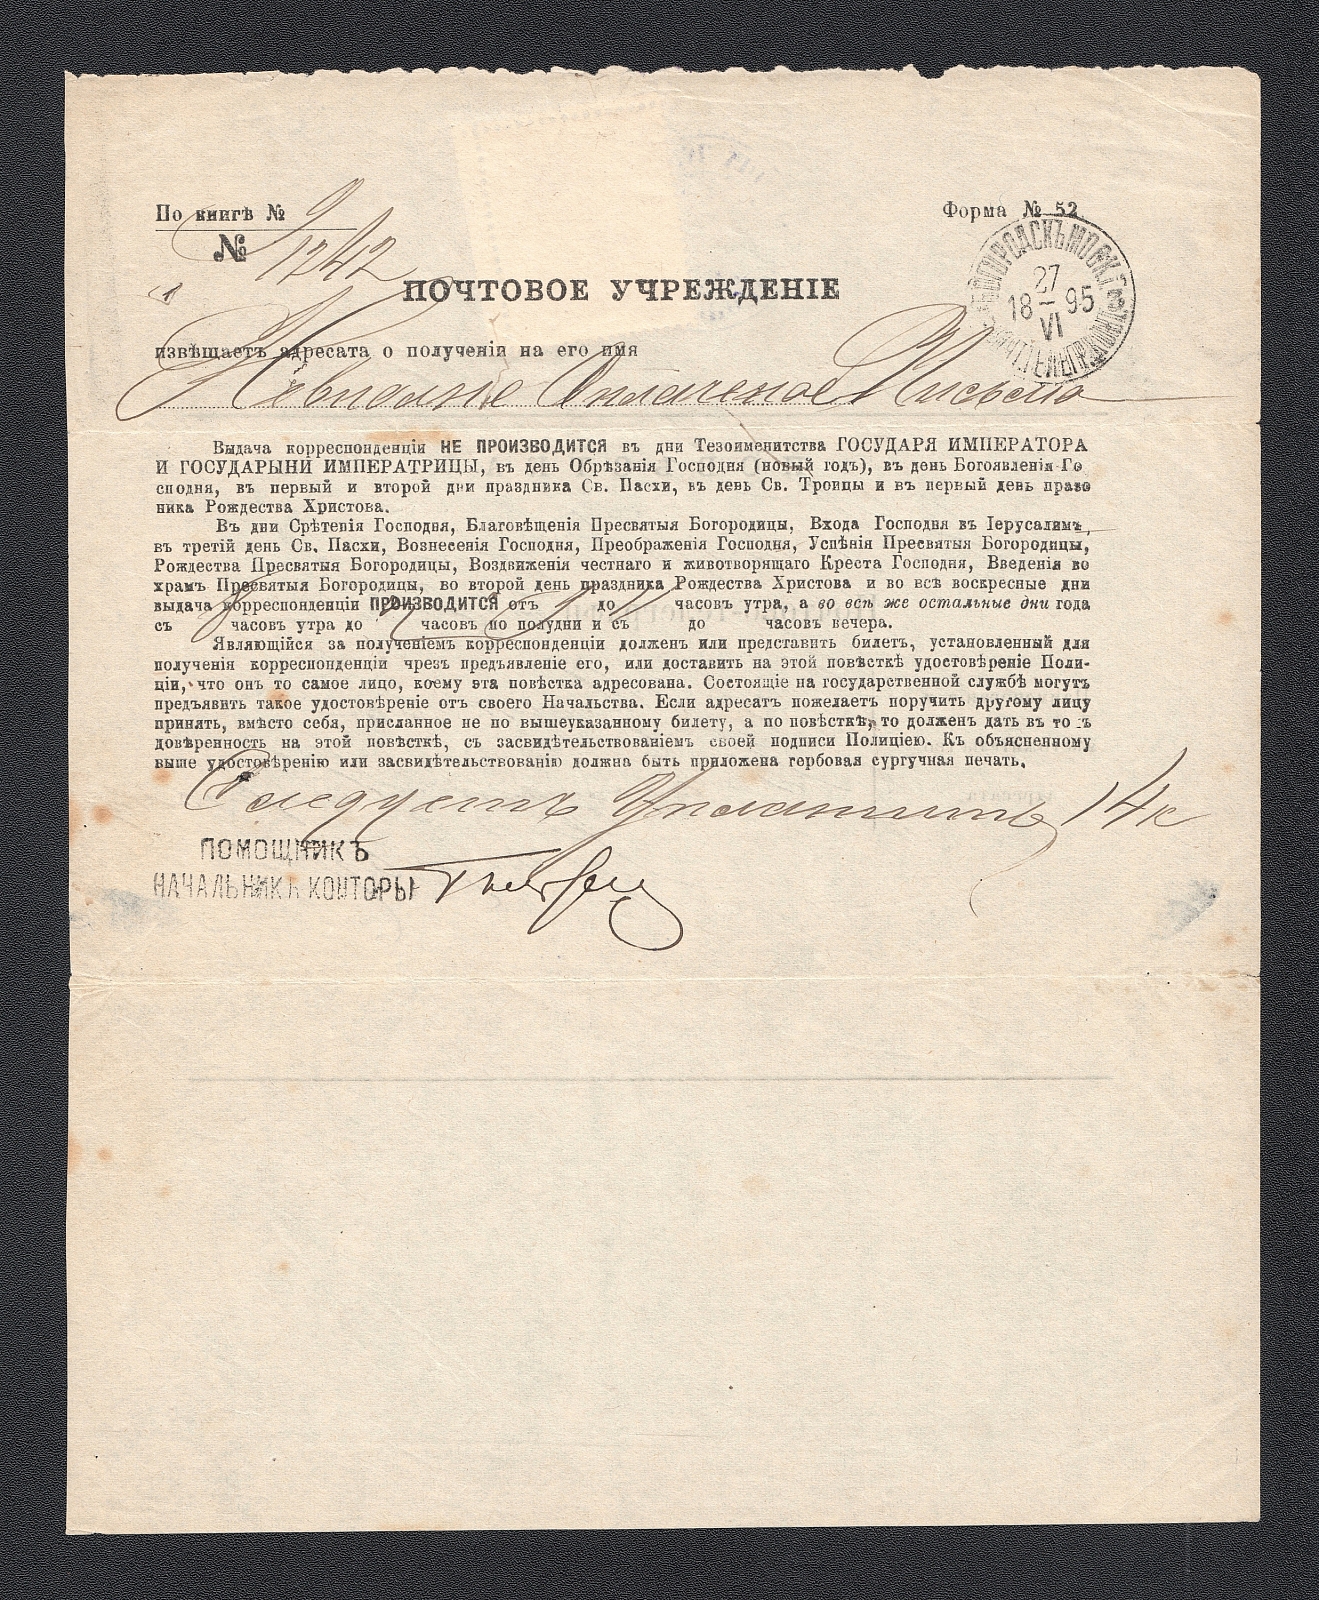 По книгѣ №
Форма № 52.
№ 1242
27
18 95
VI
ПОЧТОВОЕ УЧРЕЖДЕНІЕ
извѣщаетъ адресата о полученіи на его имя
Письмо
Выдача корреспонденціи НЕ ПРОИЗВОДИТСЯ въ дни Тезоименитства ГОСУДАРЯ ИМПЕРАТОРА
И ГОСУДАРЫНИ ИМПЕРАТРИЦЫ, въ день Обрѣзанія Господня (новый годъ), въ день Богоявленія Го
сподня, въ первый и второй дни праздника Св. Пасхи, въ день Св. Троицы и въ первый день празд
ника Рождества Христова.
Въ дни Срѣтенія Господня, Благовѣщенія Пресвятыя Богородицы, Входа Господня въ Іерусалимъ,
въ третій день Св. Пасхи, Вознесенія Господня, Преображенія Господня, Успѣнія Пресвятыя Богородицы,
Рождества Пресвятыя Богородицы, Воздвиженія честнаго и животворящаго Креста Господня, Введенія во
храмъ Пресвятыя Богородицы, во второй день праздника Рождества Христова и во всѣ воскресные дни
выдача корреспонденціи ПРОИЗВОДИТСЯ отъ до часовъ утра, а во всѣ же остальные дни года
съ часовъ утра до часовъ по полудни и съ до часовъ вечера.
Являющійся за полученіемъ корреспонденціи долженъ или представить билетъ, установленный для
полученія корреспонденціи чрезъ предъявленіе его, или доставить на этой повѣсткѣ удостовѣреніе Поли-
ціи, что онъ то самое лицо, коему эта повѣстка адресована. Состоящіе на государственной службѣ могутъ
предъявить такое удостовѣреніе отъ своего Начальства. Если адресатъ пожелаетъ поручить другому лицу
принять, вмѣсто себя, присланное не по вышеуказанному билету, а по повѣсткѣ, то долженъ дать въ томъ
довѣренность на этой повѣсткѣ, съ засвидѣтельствованіемъ своей подписи Полиціею. Къ объясненному
выше удостовѣренію или засвидѣтельствованію должна быть приложена гербовая сургучная печать.
Следуетъ Уплатить 14 к
ПОМОЩНИКЪ
НАЧАЛЬНИКА КОНТОРЫ